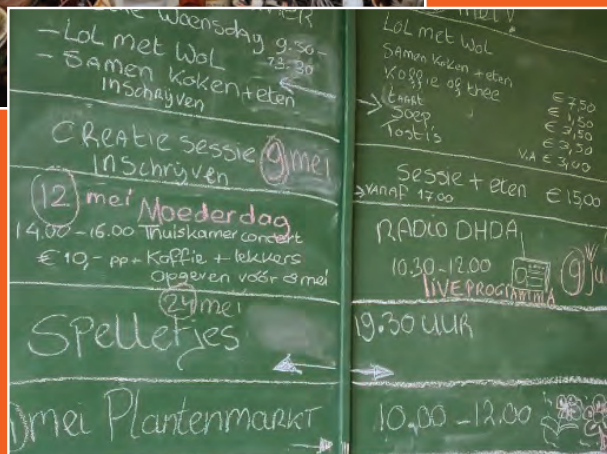 Woensdag 9.30-
- LoL met WoL 13.30
- Samen Koken+eten
Inschrijven
Creatie sessie 9 mei
Inschrijven
12 mei Moederdag
14.00-16.00 Thuiskamerconcert
€10,- pp + Koffie + lekkers
opgeven vóór 8 mei
24 mei
Spelletjes
mei Plantenmarkt
LoL met WoL
Samen Koken+eten €7,50
Koffie of thee €1,50
taart €3,50
Soep €3,50
Tosti's V.A €3,00
Sessie + eten €15,00
vanaf 17.00
RADIO DHDA
10.30-12.00 9
LIVEPROGRAMMA
19.30 UUR
10.00-12.00